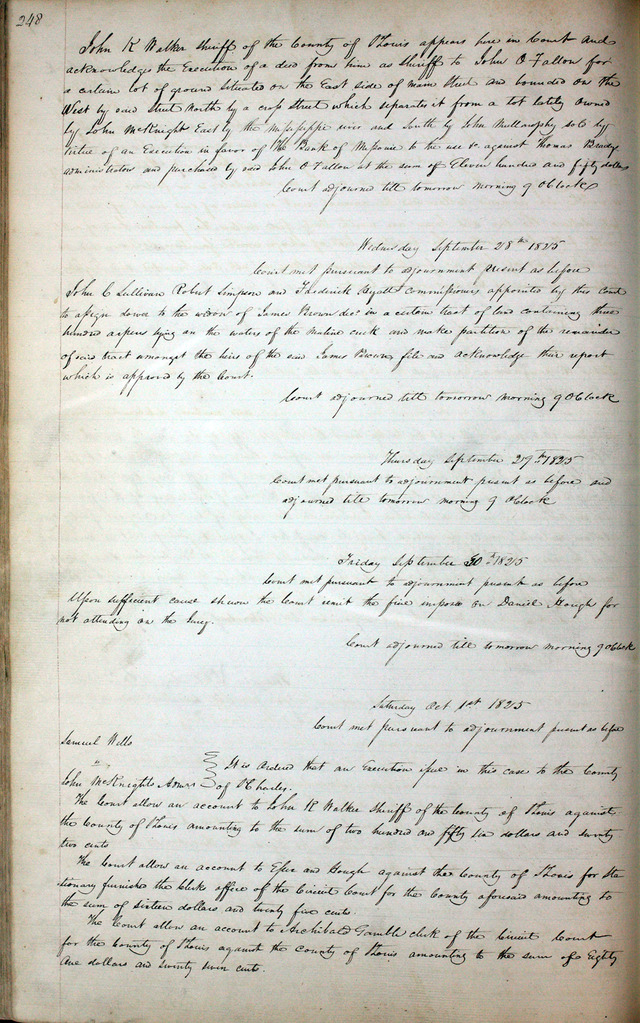 248
John K Walker sheriff of the County of St Louis appears here in Court and
acknowledges the Execution of a deed from him as sheriff to John O Fallon for
a certain lot of ground situated on the East side of main Street and bounded on the
West by said street North by a cross Street which separates it from a lot lately owned
by John McKnight East by the Mississippi river and South by John Mullanphy sold by
virtue of an Execution in favor of The Bank of Missouri to the use &c against Thomas Bradys
administrators and purchased by said John O Fallon at the sum of Eleven hundred and fifty dollars
Court adjourned till tomorrow morning 9 OClock
Wednesday September 28th 1825
Court met pursuant to adjournment present as before
John C Sullivan Robert Simpson and Frederick Hyatt Commissioners appointed by this Court
to assign dower to the widow of James Brown decd in a certain tract of land containing three
hundred arpens lying on the waters of the maline creek and make partition of the remainder
of said tract amongst the heirs of the said James Brown file and acknowledge their report
which is approved by the Court.
Court adjourned till tomorrow morning 9 OClock
Thursday September 29th 1825
Court met pursuant to adjournment present as before and
adjourned till tomorrow morning 9 OClock
Friday September 30th 1825
Court met pursuant to adjournment present as before
Upon sufficient cause shewn the Court remit the fine imposed on Daniel Hough for
not attending on the Jury.
Court adjourned till tomorrow morning 9 OClock
Saturday Oct 1st 1825
Court met pursuant to adjournment present as before
Samuel Wells
"
John McKnights Admrs
It is ordered that an Execution issue in this case to the County
of St Charles.
The Court allow an account to John K Walker sheriff of the County of St Louis against
the County of St Louis amounting to the sum of two hundred and fifty six dollars and seventy
two cents
The Court allow an account to Essex and Hough against the County of St Louis for Sta
tionary furnished the Clerks office of the Circuit Court for the County aforesaid amounting to
the sum of sixteen dollars and twenty five cents.
The Court allow an account to Archibald Gamble clerk of the Circuit Court
for the County of St Louis against the County of St Louis amounting to the sum of Eighty
one dollars and seventy seven cents.